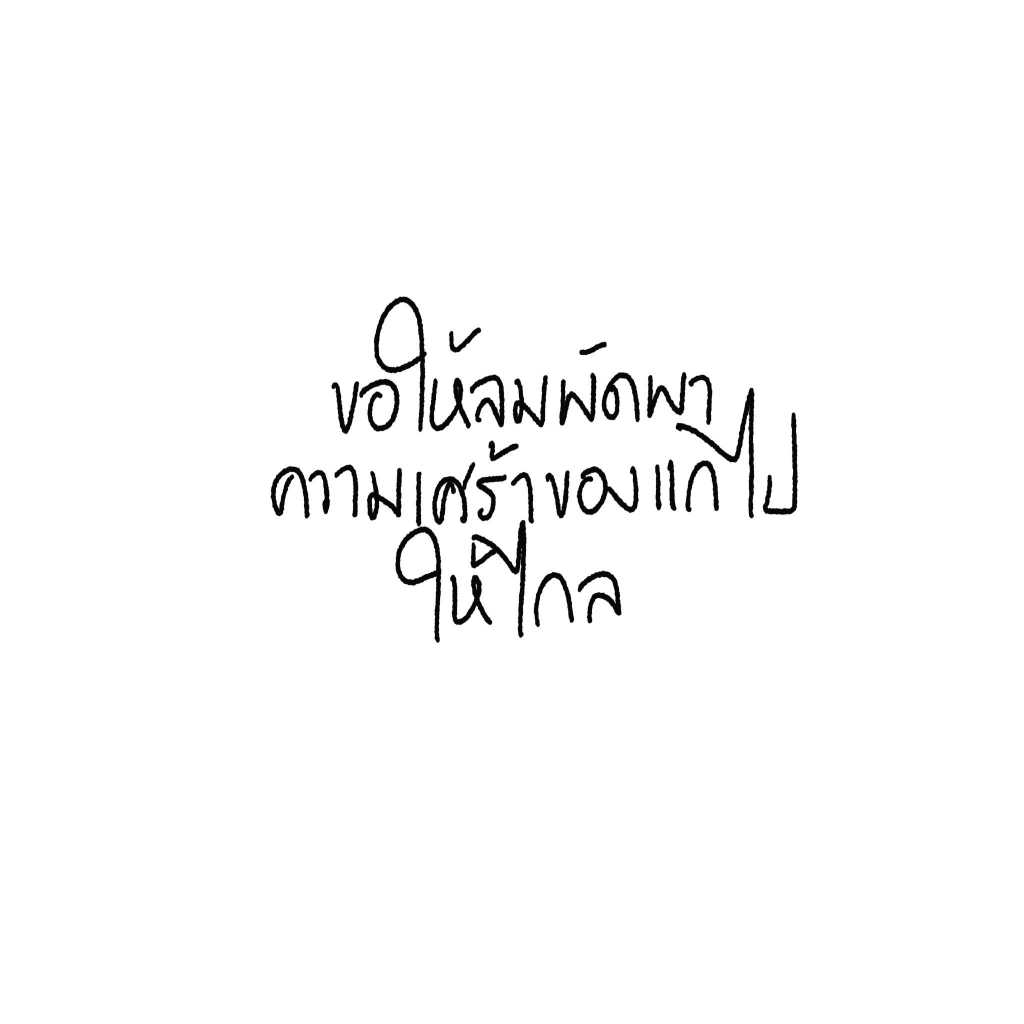 ขอให้ลมพัดพา
ความเศร้าของแกไป
ให้ไกล